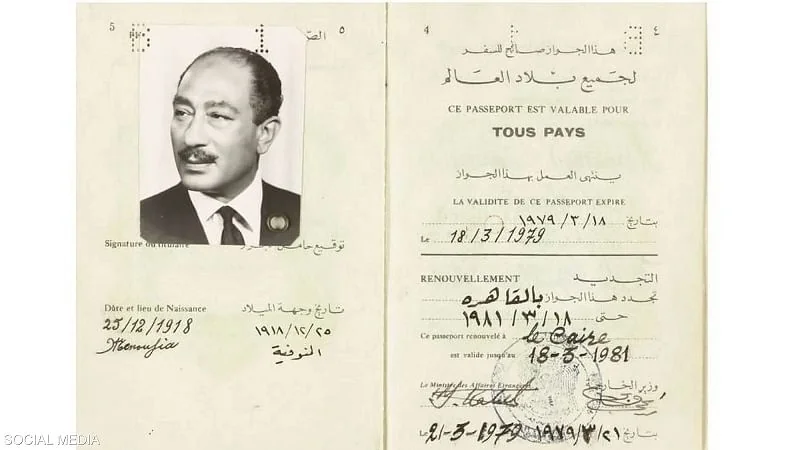 5
٥
Signature du titulaire
توقيع حامل
Date et lieu de Naissance
تاريخ وجهة الميلاد
25/12/1918
١٩١٨/١٢/٢٥
Menoufia
المنوفية
4
٤
هذا الجواز صالح للسفر
لجميع بلاد العالم
CE PASSEPORT EST VALABLE POUR
TOUS PAYS
ينتهى العمل بهذا الجواز
LA VALIDITE DE CE PASSEPORT EXPIRE
بتاريخ ١٩٧٩/٣/١٨
Le 18/3/1979
RENOUVELLEMENT
التجديد
تجدد هذا الجواز بالقاهره
حتى ١٩٨١/٣/١٨
Ce passeport renouvelé à le Caire
est valide jusqu'au 18-3-1981
Le Ministre des Affaires Etrangères
وزير الخارجية
Le 21-3-1979
بتاريخ ١٩٧٩/٣/٢١
SOCIAL MEDIA